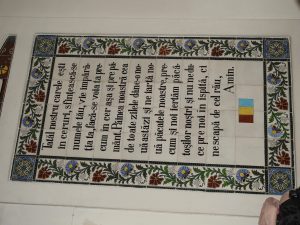 Tatăl nostru carele ești
în ceruri, sfințească-se
numele tău, vie împără-
ția ta, facă-se voia ta pre-
cum în cer așa și pre pă-
mânt. Pâinea noastră cea
de toate zilele dane-o no-
uă astăzi și ne iartă no-
uă păcatele noastre, pre-
cum și noi iertăm păcă-
toșilor noștri și nu ne du-
ce pre noi în ispită, ci
ne scapă de cel rău,
Amin.